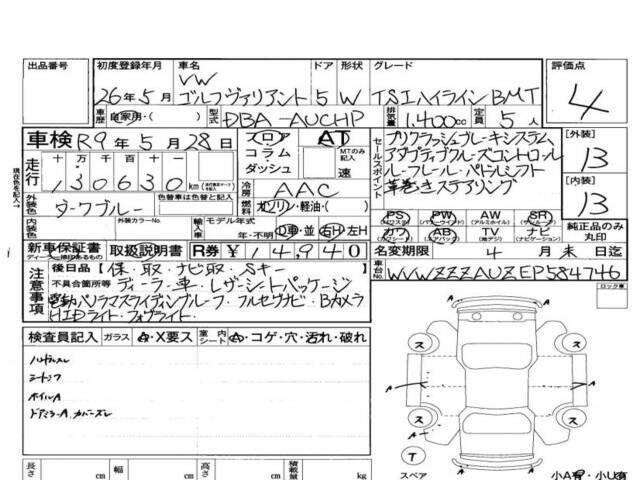 出品番号 初度登録年月 車名 ドア 形状 グレード 評価点
VW
26年5月 ゴルフヴァリアント 5 W TSIハイラインBMT 4
車歴 自家用・( ) 型式 DBA-AUCHP 排気量 1,400cc 定員 5人
車検 R9年5月28日 フロア AT セールスポイント プリクラッシュブレーキシステム [外装]
コラム MTのみ記入 アダプティブクルーズコントロール 13
ダッシュ 速 ルーフレール・パドルシフト
走行 十万 万 千 百 十 一 革巻きステアリング [内装]
130630km 冷房 AAC 13
外装色 ダークブルー 色替車は色替と記入 燃料 ガソリン・軽油・( )
PS PW AW SR 純正品のみ丸印
(パワステ) (パワーウインド) (アルミホイル) (サンルーフ)
内装色 外装カラーNo. 輸入車 モデル年式 年・不明 D車・並 右H・左H カワ AB TV ナビ
(カワシート) (エアバック) (地デジ) (ナビゲーション)
新車保証書 取扱説明書 R券 ¥14,940 名変期限 4月末日迄
ディーラー捺印あるもの
車台No. WVWZZZAUZEP584746
注意事項 後日品【保・取・ナビ取・Sキー】
不具合箇所等 ディーラー車・レザーシートパッケージ
電動パノラマスライディングルーフ・フルセグナビ・Bカメラ
HIDライト・フォグライト
ロック車
検査員記入 ガラス A・X要ス 室内シート A・コゲ・穴・汚れ・破れ
ハンドルスレ
シートシワ
ホイルA
ドアミラーA.カバースレ
ス ス
A A A
ス ス
A A
T
スペア
小A有・小U有
長さ cm 幅 cm 高さ cm 積載量 kg